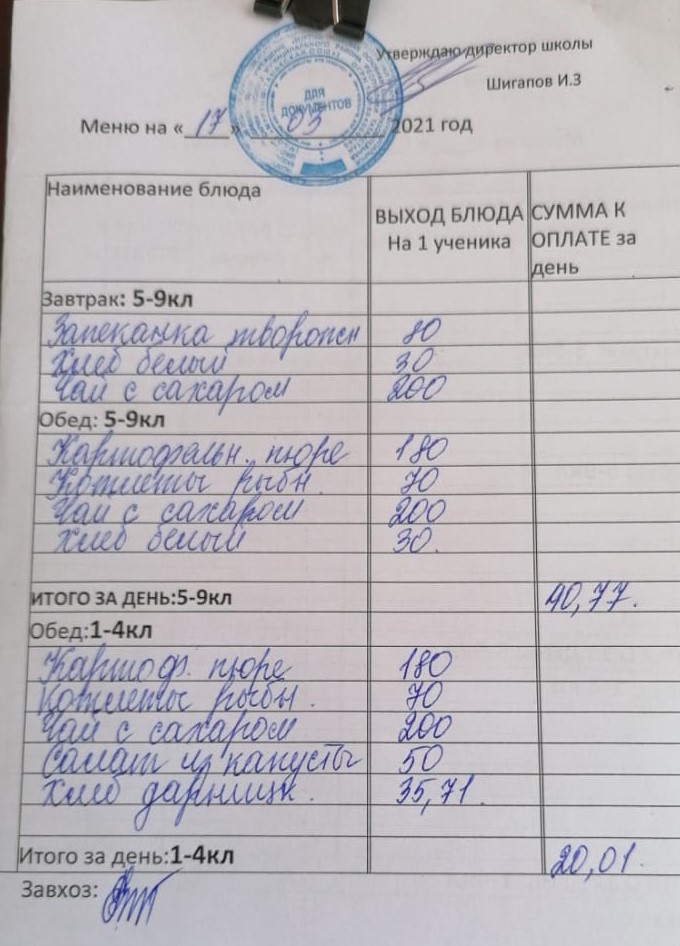 Утверждаю директор школы
Шигапов И.З
Меню на « 17 » 03 2021 год
ДЛЯ
ДОКУМЕНТОВ
Наименование блюда ВЫХОД БЛЮДА На 1 ученика СУММА К ОПЛАТЕ за день
Завтрак: 5-9кл
Запеканка творожн 80
Хлеб белый 30
Чай с сахаром 200
Обед: 5-9кл
Картофельн. пюре 180
Котлеты рыбн. 70
Чай с сахаром 200
Хлеб белый 30.
ИТОГО ЗА ДЕНЬ:5-9кл 40,77.
Обед:1-4кл
Картоф. пюре 180
Котлеты рыбн. 70
Чай с сахаром 200
Салат из капусты 50
Хлеб дарницк. 35,71.
Итого за день:1-4кл 20,01.
Завхоз: